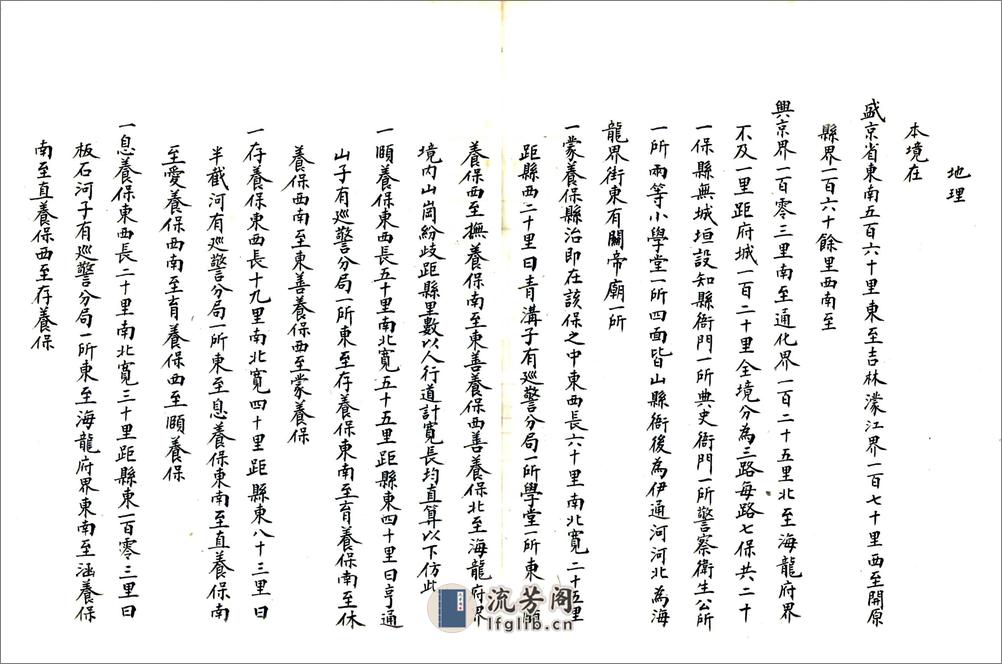 地理
本境在
盛京省東南五百六十里東至吉林濛江界一百七十里西至開原
縣界一百六十餘里西南至
興京界一百零三里南至通化界一百二十五里北至海龍府界
不及一里距府城一百二十里全境分為三路每路七保共二十
一保縣無城垣設知縣衙門一所典史衙門一所警察衛生公所
一所兩等小學堂一所四面皆山縣衙後為伊通河河北為海
龍界街東有關帝廟一所
一蒙養保縣治即在該保之中東西長六十里南北寬二十五里
距縣西二十里曰青溝子有巡警分局一所學堂一所東至頤
養保西至撫養保南至東善養保西善養保北至海龍府界
境内山崗紛歧距縣里數以人行道計寬長均直算以下仿此
一頤養保東西長五十里南北寬五十五里距縣東四十里曰亨通
山子有巡警分局一所東至存養保東南至育養保南至休
養保西南至東善養保西至蒙養保
一存養保東西長十九里南北寬四十里距縣東八十三里曰
半截河有巡警分局一所東至息養保東南至直養保南
至愛養保西南至育養保西至頤養保
一息養保東西長二十里南北寬三十里距縣東一百零三里曰
板石河子有巡警分局一所東至海龍府界東南至涵養保
南至直養保西至存養保
流芳阁
lfglib.cn